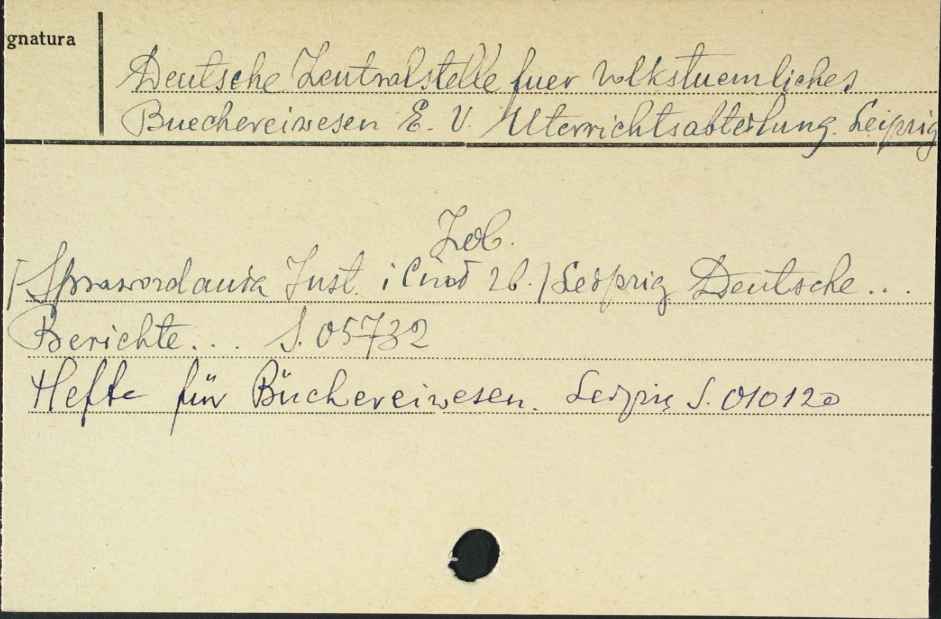 gnatura
Deutsche Zentralstelle fuer volkstuemliches
Buechereiwesen E. V. Uterrichtsabteilung. Leipzig
Zob.
/Sprawozdania Inst. i 26./ Leipzig Deutsche...
Berichte... S. 05732
Hefte für Büchereiwesen. Leipzig S. 010120